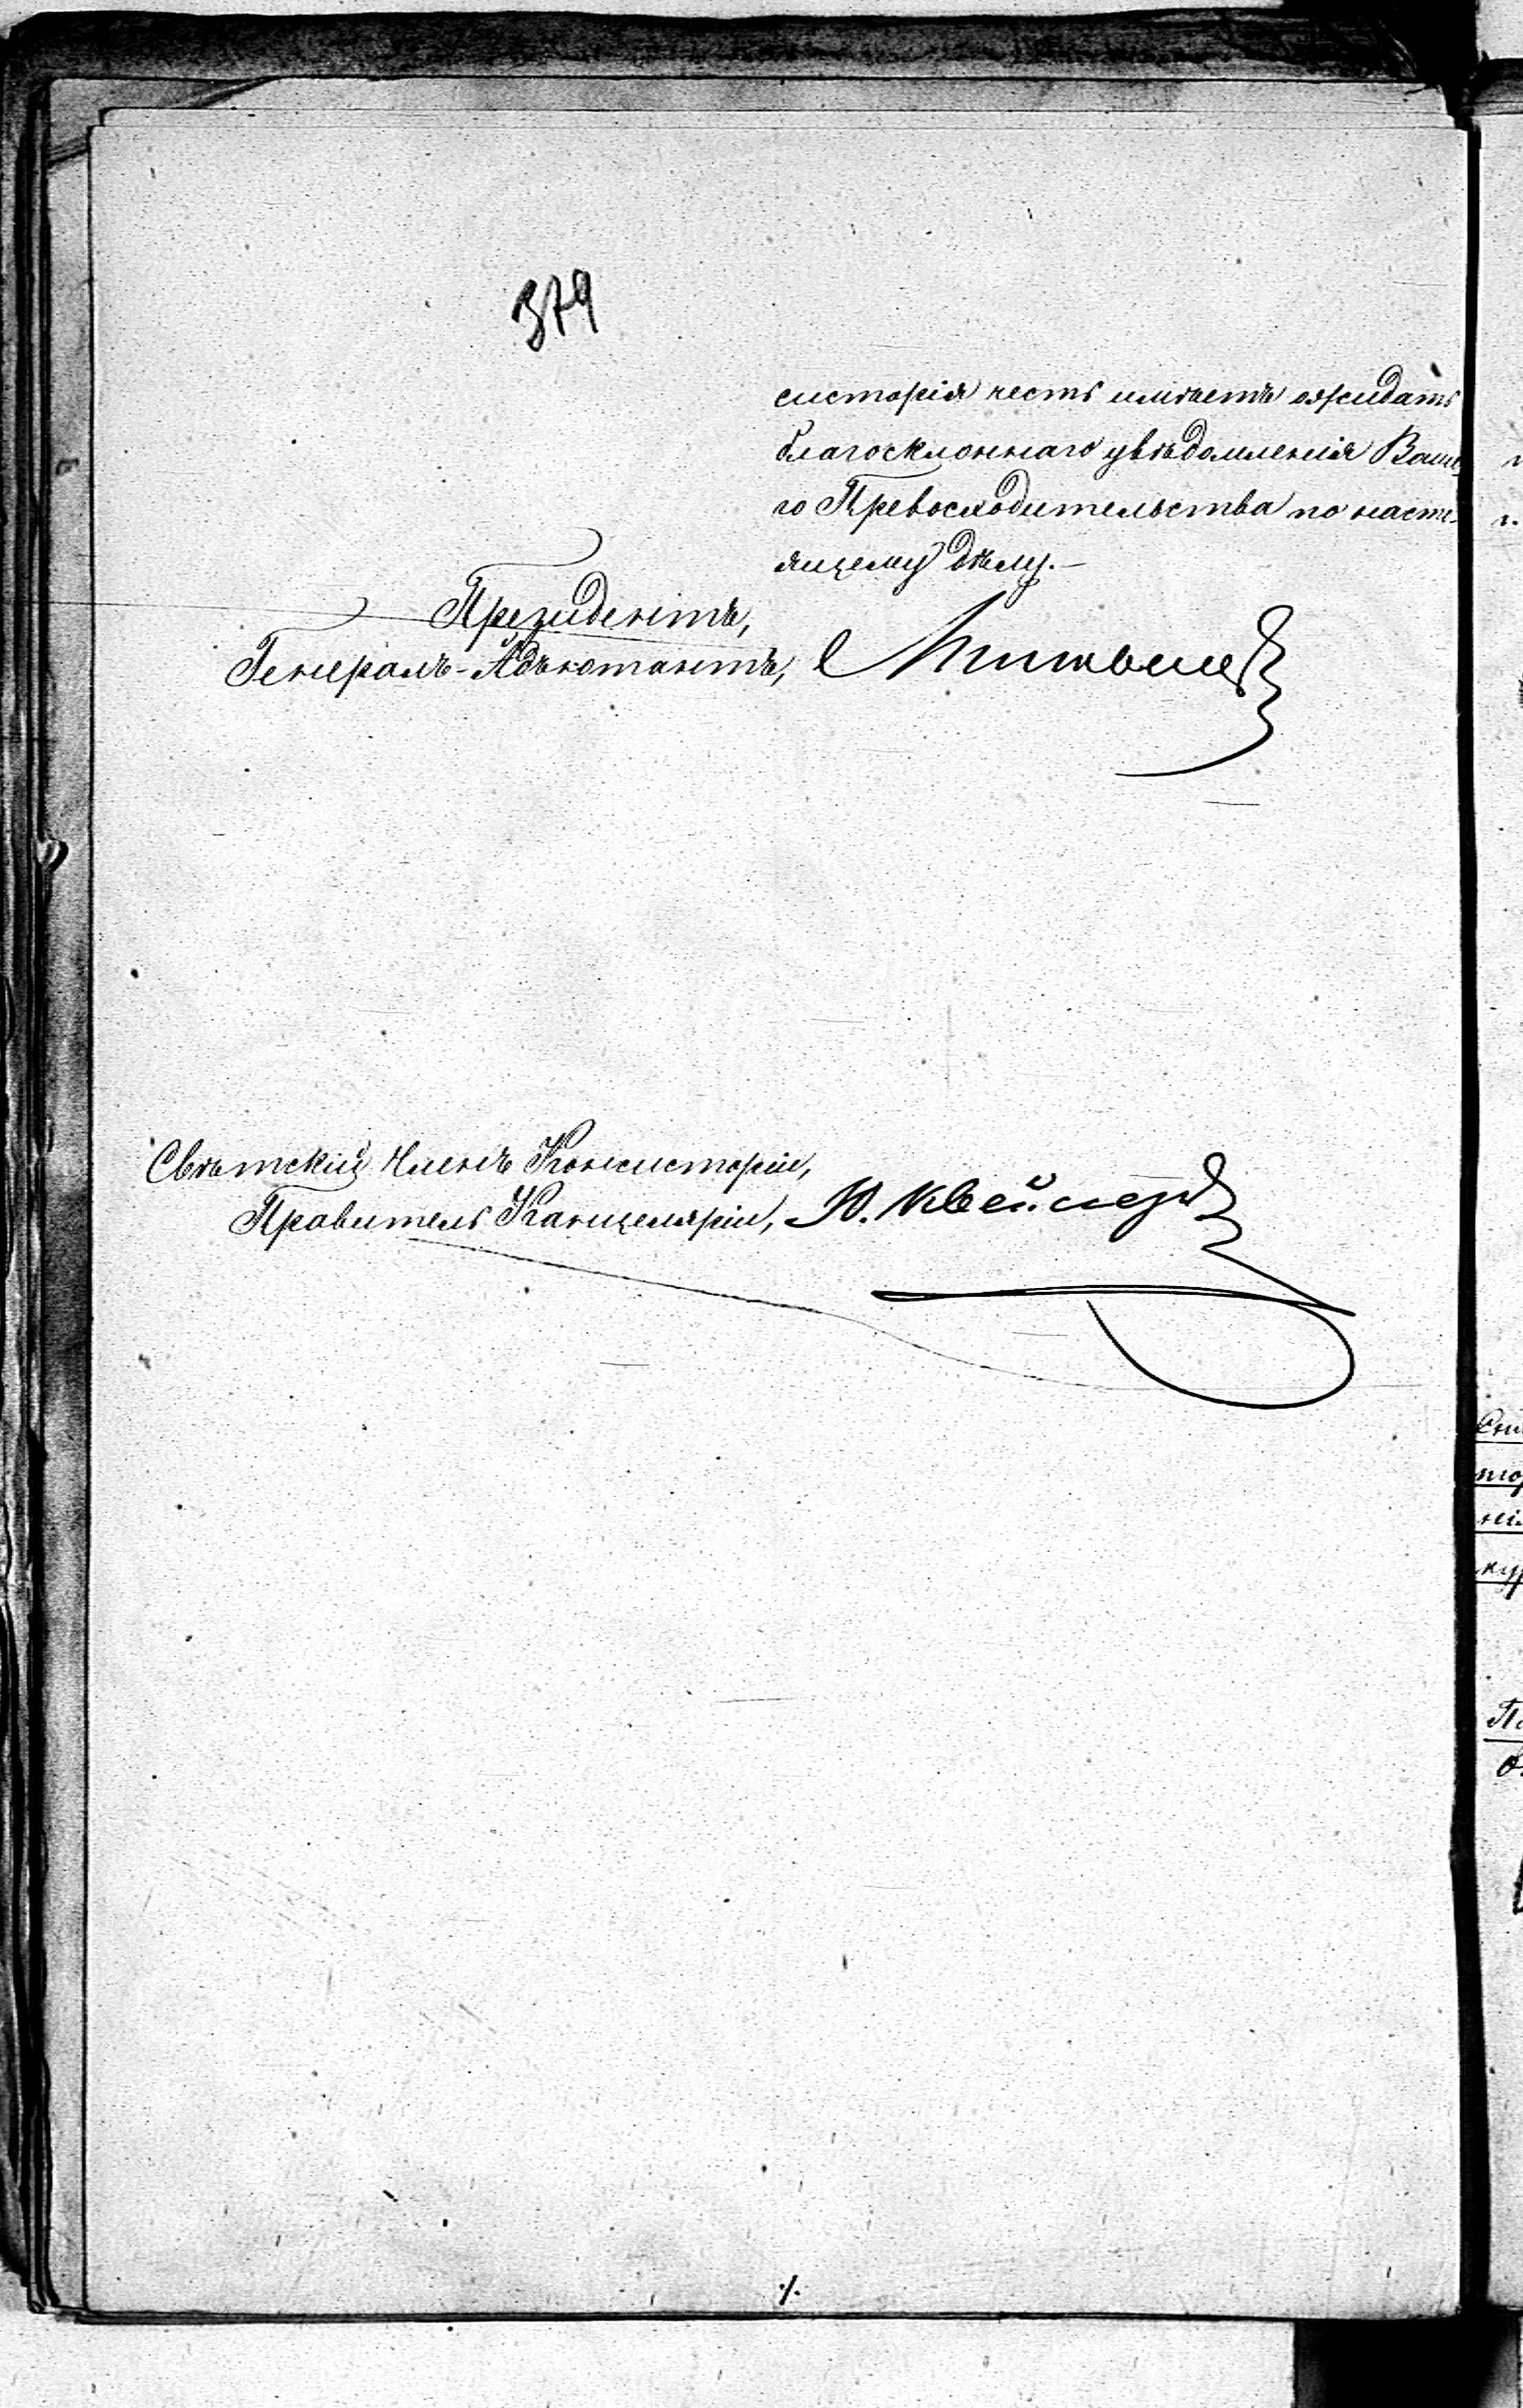 379
систорія честь имѣетъ ожидать
благосклоннаго увѣдомленія Ваше
го Превосходительства по насто-
ящему дѣлу.—
Президентъ,
Генералъ-Адъютантъ,
Свѣтскій Членъ Консисторіи,
Правитель Канцеляріи, Ю.